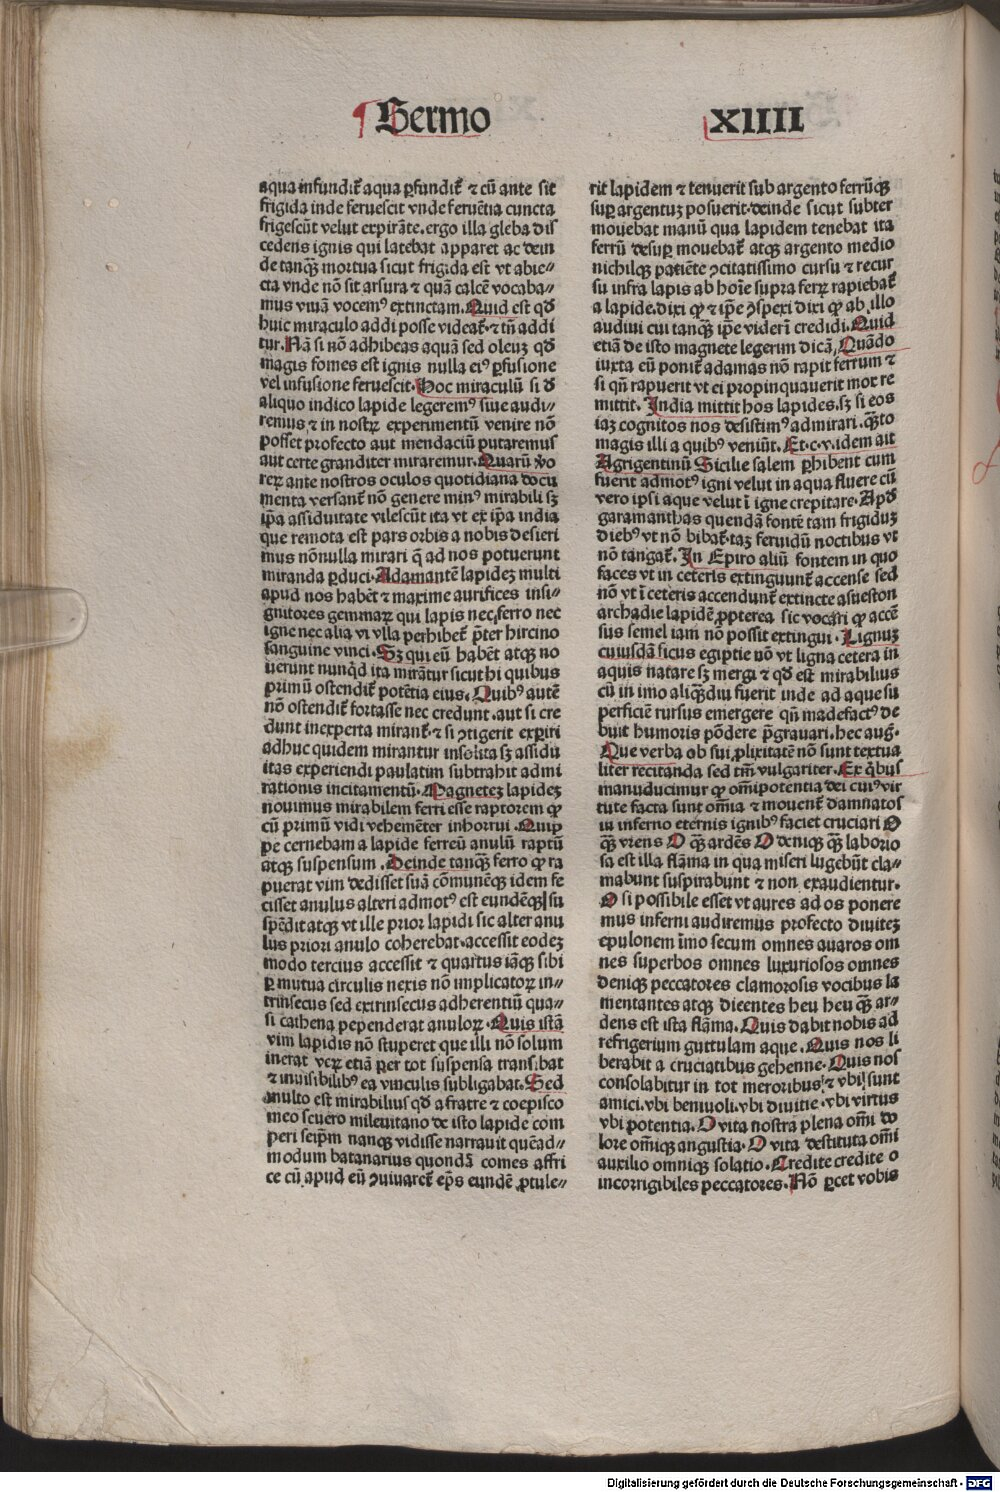 Sermo XIIII
aqua infundit̃ aqua ꝑfundit̃ ⁊ cũ ante sit
frigida inde feruescit vnde feruẽtia cuncta
frigescũt velut expirãte.ergo illa gleba dis
cedens ignis qui latebat apparet ac dein
de tanqꝫ mortua sicut frigida est vt abie⸗
cta vnde nõ sit arsura ⁊ quã calcẽ vocaba⸗
mus viuã vocemꝰ extinctam.Quid est qd̃
huic miraculo addi posse videat̃.⁊ tñ addi
tur.Nã si nõ adhibeas aquã sed oleuꝫ qd̃
magis fomes est ignis nulla eiꝰ ꝑfusione
vel infusione feruescit.Hoc miraculũ si d̃
aliquo indico lapide legeremꝰ siue audi⸗
remus ⁊ in nostꝝ experimentũ venire nõ
posset profecto aut mendaciũ putaremus
aut certe granditer miraremur.Quarũ ṽo
reꝝ ante nostros oculos quotidiana docu
menta versant̃ nõ genere minꝰ mirabili sꝫ
ip̃a assiduitate vilescũt ita vt ex ip̃a india
que remota est pars orbis a nobis desieri
mus nõnulla mirari q̃ ad nos potuerunt
miranda ꝑduci.Adamantẽ lapideꝫ multi
apud nos habẽt ⁊ maxime aurifices insi⸗
gnitores gemmaꝝ qui lapis nec ferro nec
igne nec alia vi vlla perhibet̃ p̃ter hircino
sanguine vinci.Sꝫ qui eũ habẽt atqꝫ no
uerunt nunqd̃ ita mirãtur sicut hi quibus
primũ ostendit̃ potẽtia eius.Quibꝰ autẽ
nõ ostendit̃ fortasse nec credunt.aut si cre
dunt inexperta mirant̃.⁊ si ↄtigerit exꝑiri
adhuc quidem mirantur insolita sꝫ assidu
itas experiendi paulatim subtrahit admi
rationis incitamentũ.Magneteꝫ lapideꝫ
nouimus mirabilem ferri esse raptorem qꝫ
cũ primũ vidi vehemẽter inhorrui.Quip
pe cernebam a lapide ferreũ anulũ raptũ
atqꝫ suspensum.Deinde tanqꝫ ferro qꝫ ra
puerat vim dedisset suã cõmunẽqꝫ idem fe
cisset anulus alteri admotꝰ est eundẽqꝫ su
spẽdit atqꝫ vt ille prior lapidi sic alter anu
lus priori anulo coherebat.accessit eodeꝫ
modo tercius accessit ⁊ quartus iãqꝫ sibi
ꝑ mutua circulis nexis nõ implicatoꝝ in⸗
trinsecus sed extrinsecus adherentiũ qua⸗
si cathena pependerat anuloꝝ.Quis istã
vim lapidis nõ stuperet que illi nõ solum
inerat veꝝ etiã per tot suspensa transibat
⁊ inuisibilibꝰ ea vinculis subligabat.Sed
multo est mirabilius qd̃ a fratre ⁊ coepisco
meo seuero mileuitano de isto lapide com
peri seip̃m nanqꝫ vidisse narrauit quẽad⸗
modum batanarius quondã comes affri
ce cũ apud eũ ↄuiuaret̃ ep̃s eundẽ ꝓtule⸗
rit lapidem ⁊ tenuerit sub argento ferrũqꝫ
suꝑ argentuꝫ posuerit.deinde sicut subter
mouebat manũ qua lapidem tenebat ita
ferrũ desuꝑ mouebat̃ atqꝫ argento medio
nichilqꝫ patiẽte ↄcitatissimo cursu ⁊ recur
su infra lapis ab hoĩe supra ferꝝ rapiebat̃
a lapide.dixi qꝫ ⁊ ip̃e ↄspexi dixi qꝫ ab illo
audiui cui tanqꝫ ip̃e viderĩ credidi.Quid
etiã de isto magnete legerim dicã,Quãdo
iuxta eũ ponit̃ adamas nõ rapit ferrum ⁊
si qñ rapuerit vt ei propinquauerit mox re
mittit.India mittit hos lapides.sꝫ si eos
iaꝫ cognitos nos desistimꝰ admirari.qꝫto
magis illi a quibꝰ veniũt.Et.c.v.idem ait
Agrigentinũ Sicilie salem ꝑhibent cum
fuerit admotꝰ igni velut in aqua fluere cũ
vero ipsi aque velut ĩ igne crepitare.Apd̃
garamanthas quendã fontẽ tam frigiduꝫ
diebꝰ vt nõ bibat̃.taꝫ feruidũ noctibus vt
nõ tangat̃.In Epiro aliũ fontem in quo
faces vt in ceteris extinguunt̃ accense sed
nõ vt ĩ ceteris accendunt̃ extincte asueston
archadie lapidẽ ꝓpterea sic vocari qꝫ accẽ
sus semel iam nõ possit extingui.Lignuꝫ
cuiusdã sicus egiptie nõ vt ligna cetera in
aquis natare sꝫ mergi ⁊ qd̃ est mirabilius
cũ in imo aliqꝫdiu fuerit inde ad aque su
perficiẽ rursus emergere qñ madefactꝰ de
buit humoris põdere p̃grauari.hec augꝰ.
Que verba ob sui ꝓlixitatẽ nõ sunt textua
liter recitanda sed tm̃ vulgariter.Ex q̃bus
manuducimur qꝫ om̃ipotentia dei cuiꝰ vir
tute facta sunt om̃ia ⁊ mouent̃ damnatos
in inferno eternis ignibꝰ faciet cruciari O
qꝫ vrens O qꝫ ardẽs O deniqꝫ qꝫ laborio
sa est illa flãma in qua miseri lugebũt cla⸗
mabunt suspirabunt ⁊ non exaudientur.
O si possibile esset vt aures ad os ponere
mus inferni audiremus profecto diuiteꝫ
epulonem ĩmo secum omnes auaros om
nes superbos omnes luxuriosos omnes
deniqꝫ peccatores clamorosis vocibus la
mentantes atqꝫ dicentes heu heu qꝫ ar⸗
dens est ista flãma.Quis dabit nobis ad
refrigerium guttulam aque.Quis nos li
berabit a cruciatibus gehenne.Quis nos
consolabitur in tot meroribus ⁊ vbi sunt
amici.vbi beniuoli.vbi diuitie.vbi virtus
vbi potentia.O vita nostra plena om̃i do
lore om̃iqꝫ angustia.O vita destituta om̃i
auxilio omniqꝫ solatio.Credite credite o
incorrigibiles peccatores.Nõ ꝑcet vobis
Digitalisierung gefördert durch die Deutsche Forschungsgemeinschaft - DFG